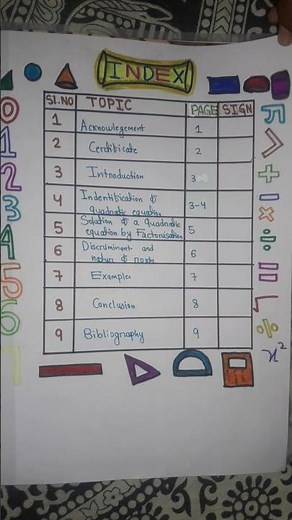 INDEX
SI.NO TOPIC PAGE SIGN
1 Acknowlegement 1
2 Certificate 2
3 Introduction 3
4 Indentification of
quadratic equation 3-4
5 Solution of a quadratic
equation by Factorisation 5
6 Discriminant and
nature of roots 6
7 Examples 7
8 Conclusion 8
9 Bibliography 9
0
1
2
3
4
5
6
7
π
>
+
-
×
÷
=
%
x²